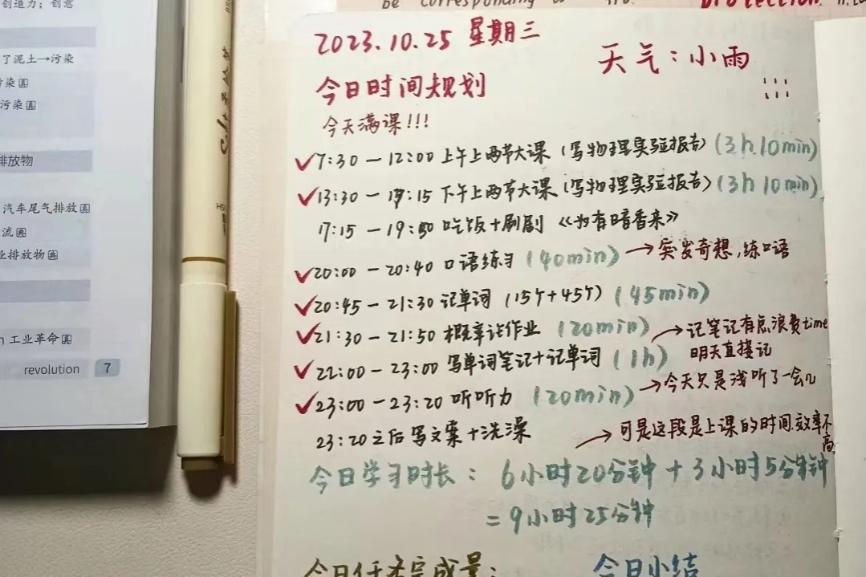 创造力；创意
了泥土→污染
染圆
污染圆
排放物
汽车尾气排放圆
流圆
业排放物圆
工业革命圆
revolution 7
be corresponding to
protection.
2023.10.25 星期三
天气：小雨
今日时间规划
今天满课!!!
✓7:30 — 12:00 上午上两节大课（写物理实验报告）(3h 10min)
✓13:30 — 17:15 下午上两节大课（写物理实验报告）(3h 10min)
17:15 — 19:50 吃饭+刷剧 《为有暗香来》
✓20:00 — 20:40 口语练习 (40min) →突发奇想,练口语
✓20:45 — 21:30 记单词 (15个+45个) (45min)
✓21:30 — 21:50 概率论作业 (20min) →记笔记有点浪费time
明天直接记
✓22:00 — 23:00 写单词笔记+记单词 (1h)
✓23:00 — 23:20 听听力 (20min) →今天只是浅听了一会儿
23:20之后写文案+洗澡
→可是这段是上课的时间,效率不高
今日学习时长：6小时20分钟+3小时5分钟
=9小时25分钟
今日任务完成量：
今日小结